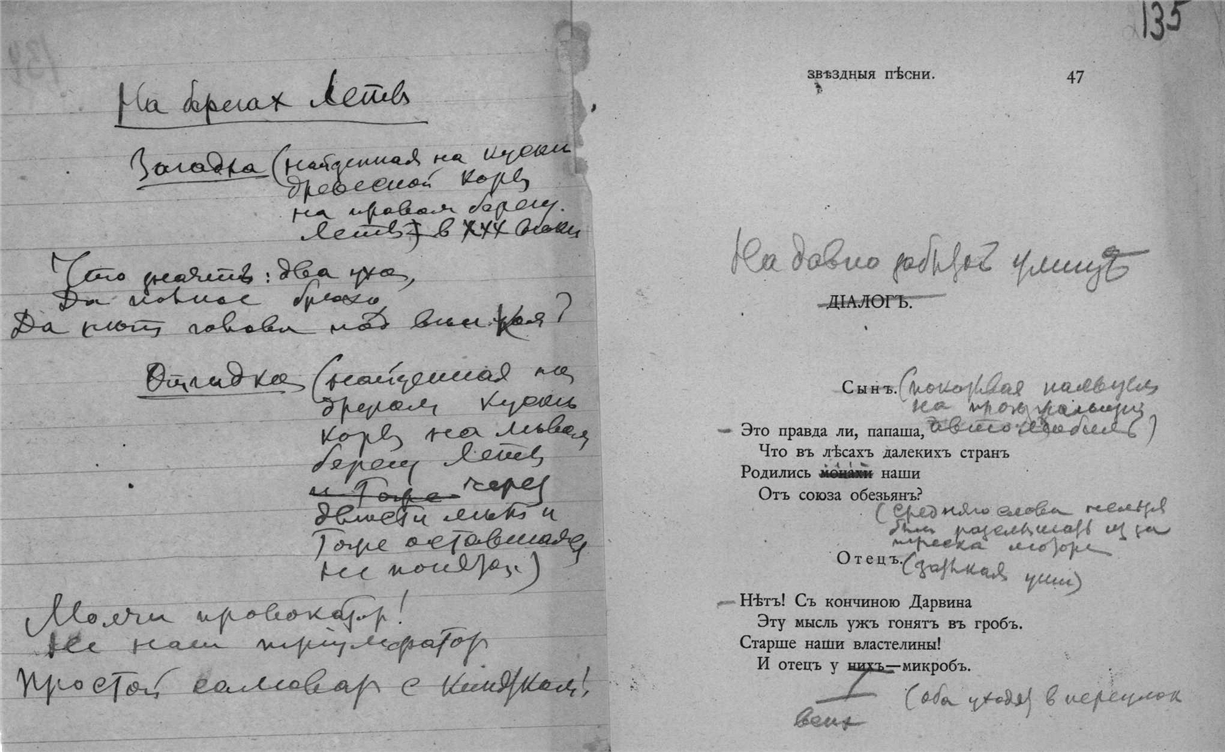 На брегах Леты
Загадка (найденная на куске
древесной коры
на правом берегу
Леты в XXX веке
Что значит: два уха,
Да полное брюхо
Да нет головы над
Отгадка (найденная на
другом куске
коры на левом
берегу Леты
и Тоже через
двести лет и
тоже оставшаяся
не понятой)
Молчи провокатор!
Не наш
Простой самовар с
135
ЗВѢЗДНЫЯ ПѢСНИ. 47
На давно забытой улицѣ
ДІАЛОГЪ.
Сынъ. (показывая пальцем
на
автомобиль)
Это правда ли, папаша,
Что въ лѣсахъ далекихъ странъ
Родились монахи наши
Отъ союза обезьянъ?
(среднего слова нельзя
было разслышать из за
треска мотора
Отецъ. (
Нѣтъ! Съ кончиною Дарвина
Эту мысль ужъ гонятъ въ гробъ.
Старше наши властелины!
И отецъ у нихъ—микробъ.
всех
(оба уходят в переулок